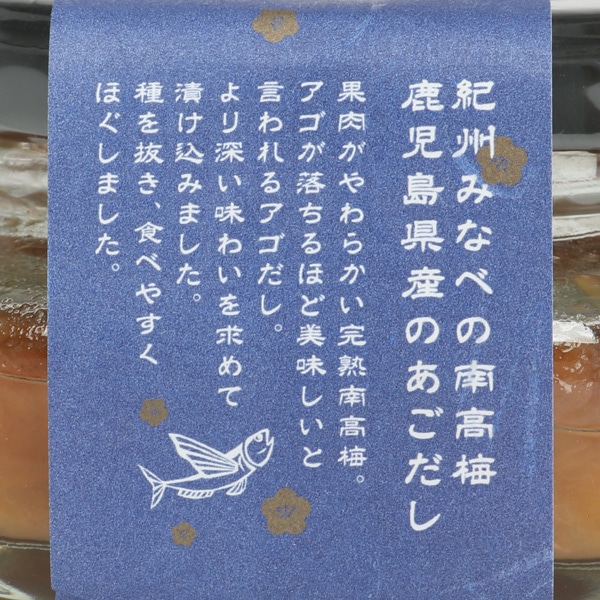 紀州みなべの南高梅
鹿児島県産のあごだし
果肉がやわらかい完熟南高梅。
アゴが落ちるほど美味しいと
言われるアゴだし。
より深い味わいを求めて
漬け込みました。
種を抜き、食べやすく
ほぐしました。